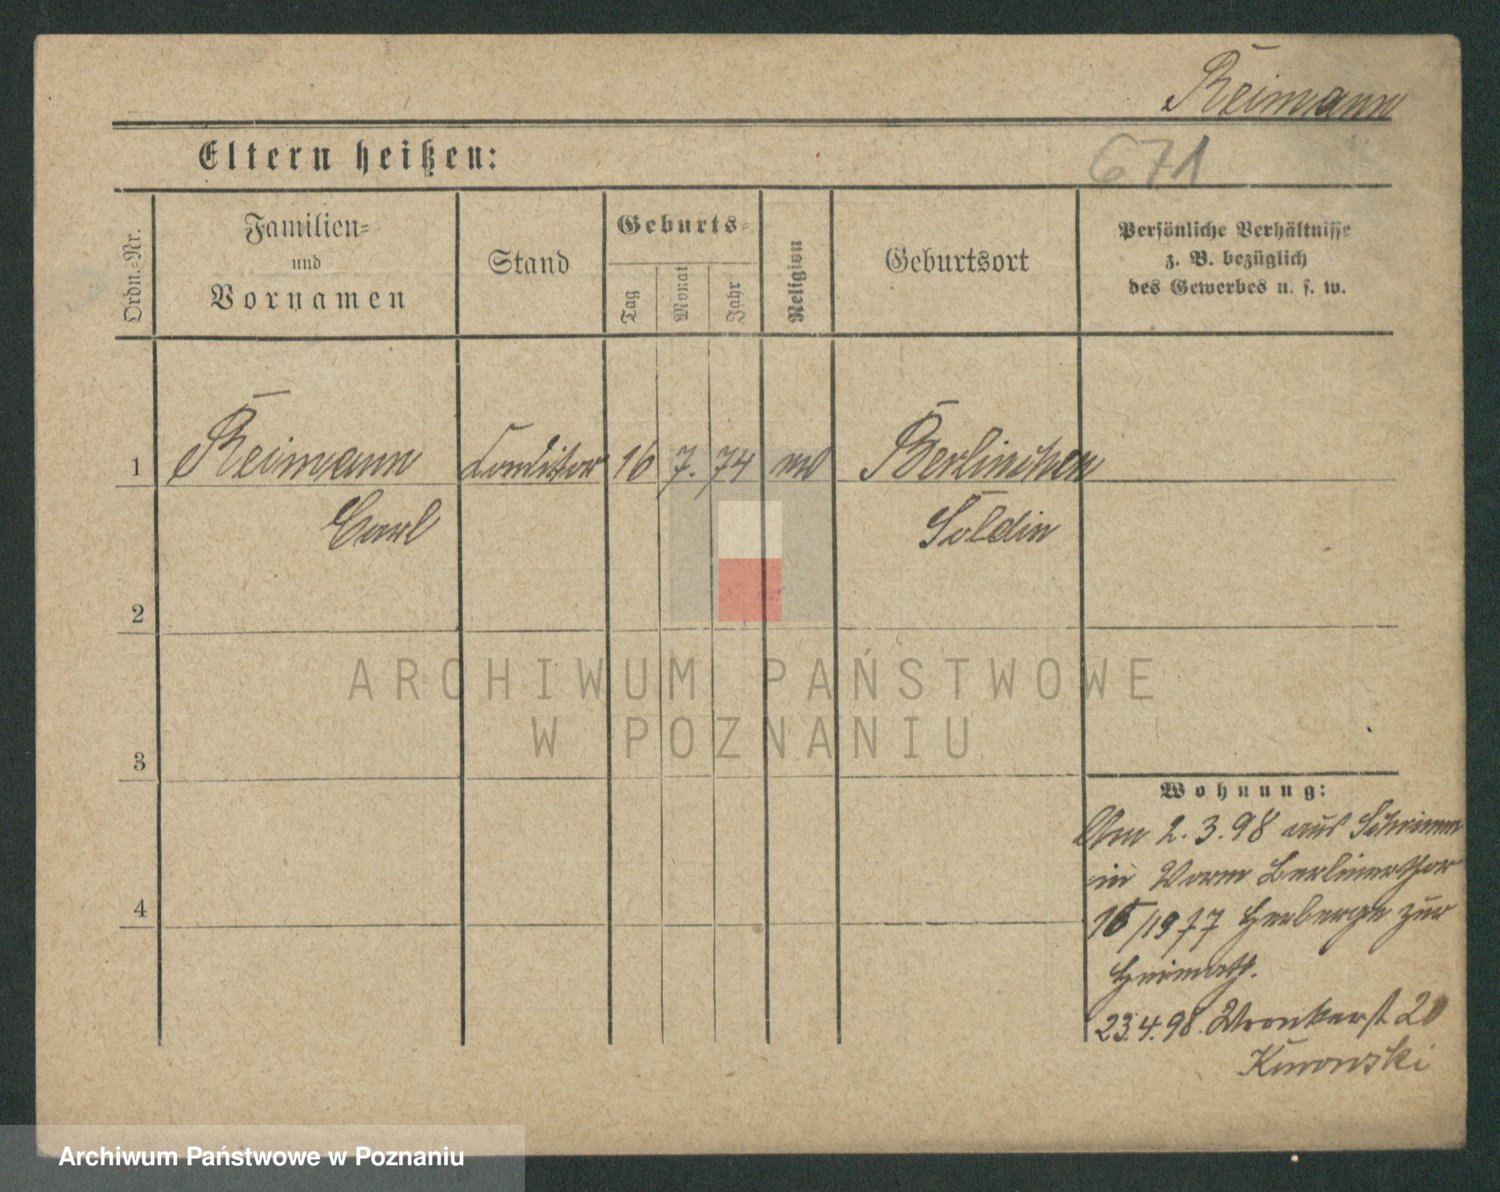 Reimann
Eltern heißen:
671
Ordn.-Nr.
Familien-
und
Vornamen
Stand
Geburts-
Tag
Monat
Jahr
Religion
Geburtsort
Persönliche Verhältnisse
z. B. bezüglich
des Gewerbes u. s. w.
1 Reimann Conditor 16 7. 74 ev Berlinchen
Carl Soldin
2
ARCHIWUM PAŃSTWOWE
W POZNANIU
3
Wohnung:
Am 2.3.98 aus Schrimm
in Vorm Berlinerthor
Herberge zur
4
Heimath.
23.4.98. Wronkerst 20
Archiwum Państwowe w Poznaniu